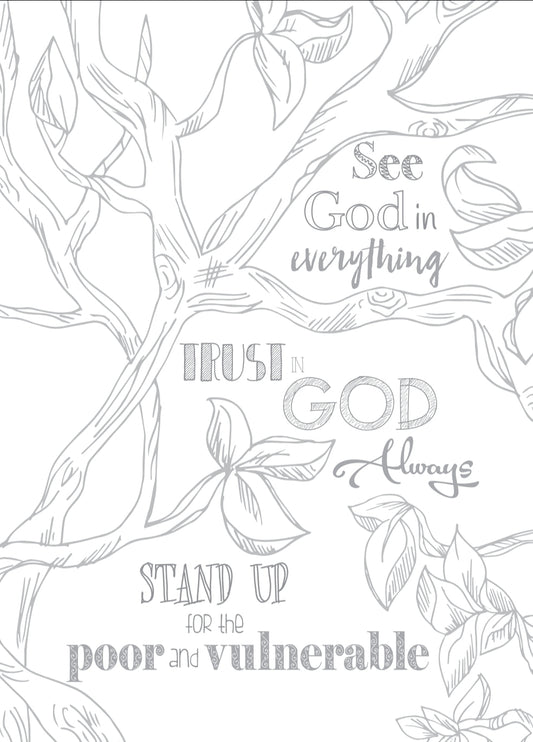 See
God in
everything
TRUST IN
GOD
Always
STAND UP
for the
poor and vulnerable